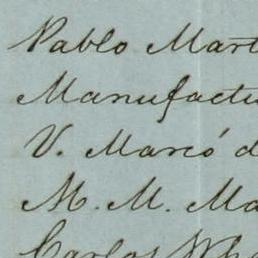 Pablo Mart
Manufactu
V. Marcó d
M. M. Ma
Carlos Wha